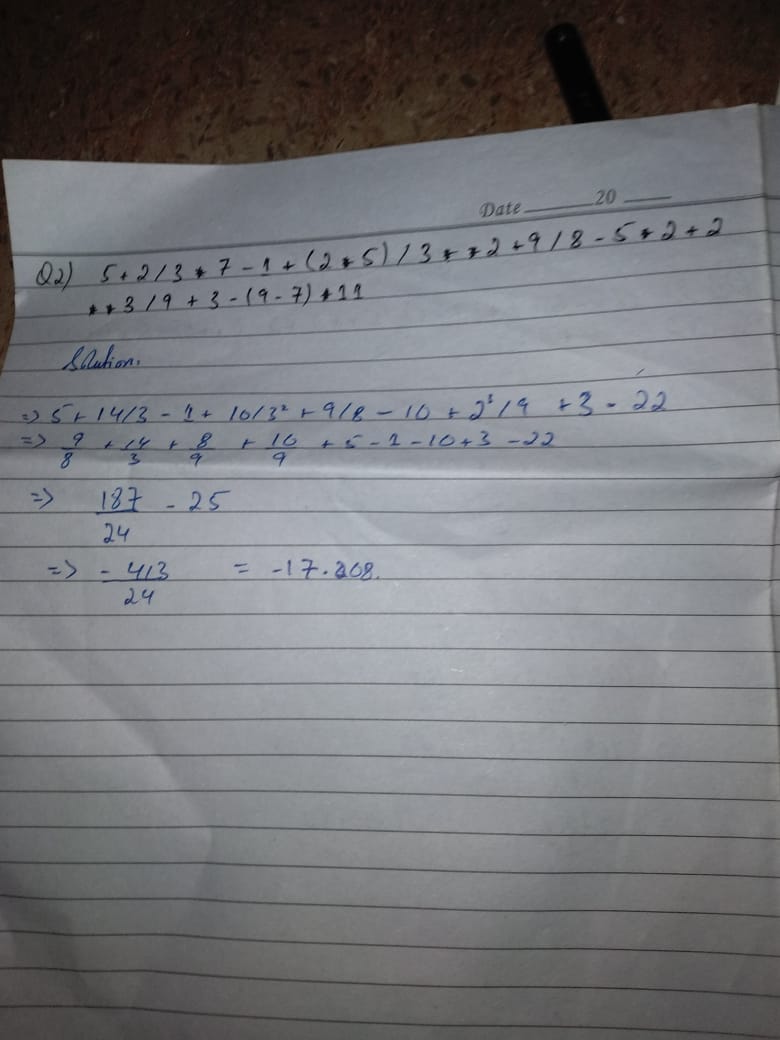 Date 20
Q2) 5+2/3*7-1+(2*5)/3**2+9/8-5*2+2
**3/9+3-(9-7)*11
Solution.
=> 5+14/3-1+10/3²+9/8-10+2³/9+3-22
=> 9/8+14/3+8/9+10/9+5-1-10+3-22
=> 187/24-25
=> -413/24 = -17.208.